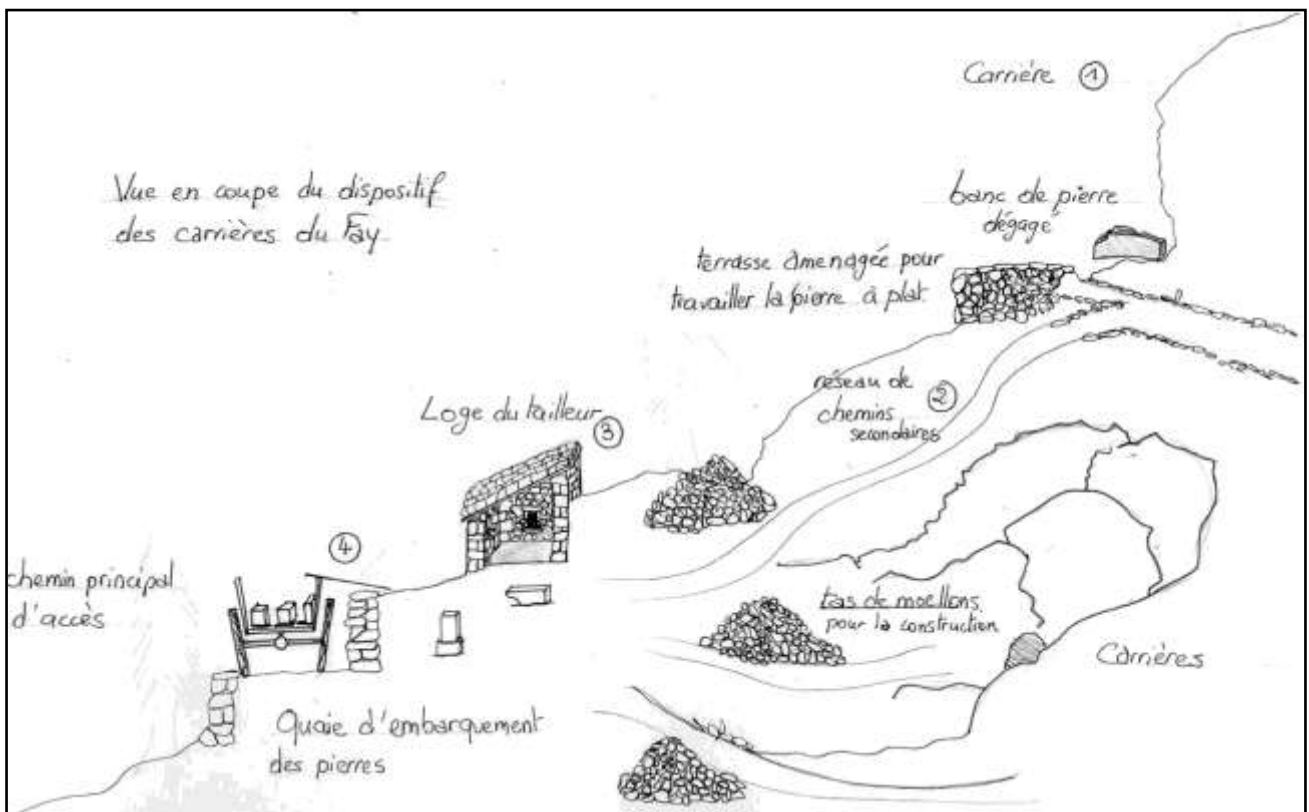 Carrière ①
Vue en coupe du dispositif
des carrières du Fay
banc de pierre
dégagé
terrasse aménagée pour
travailler la pierre à plat
réseau de
chemins
secondaires
②
Loge du tailleur
③
④
chemin principal
d'accès
tas de moellons
pour la construction
Carrières
Quaie d'embarquement
des pierres